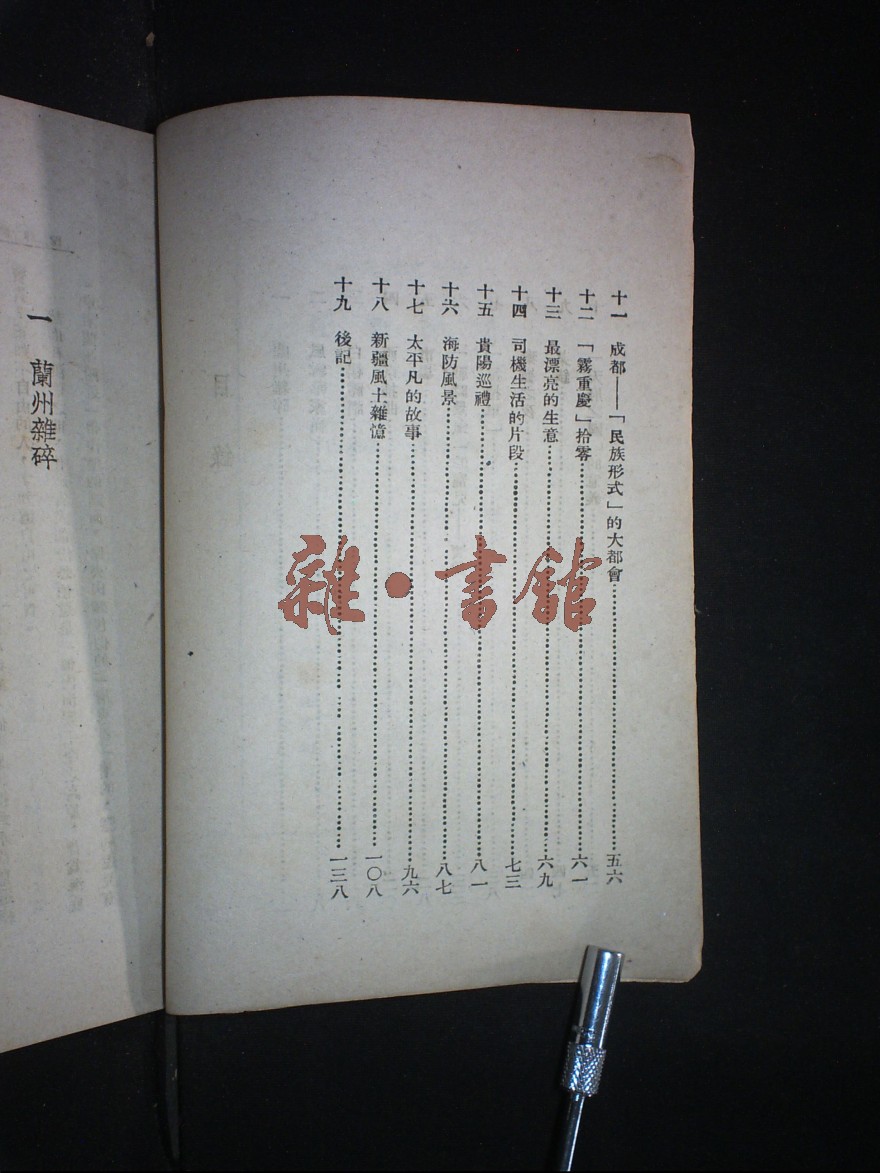 十一 成都——「民族形式」的大都會……五六
十二 「霧重慶」拾零……六一
十三 最漂亮的生意……六九
十四 司機生活的片段……七三
十五 貴陽巡禮……八一
十六 海防風景……八七
十七 太平凡的故事……九六
十八 新疆風土雜憶……一〇八
十九 後記……一三八
一 蘭州雜碎
雜·書館